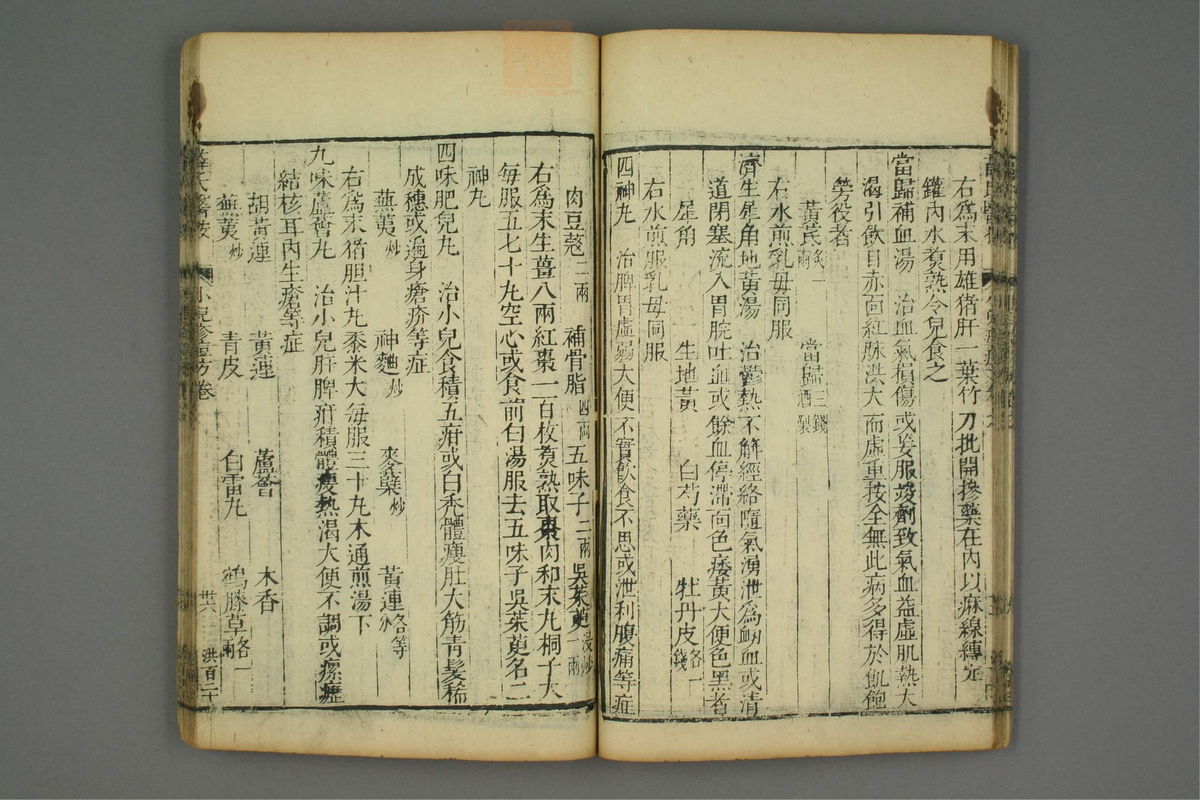 右爲末用雄猪肝一葉竹刀批開摻藥在内以麻線縛定
鑵内水煑熟令兒食之
當歸補血湯　治血氣損傷或妄服峻劑致氣血益虛肌熱大
渴引飲目赤面紅脉洪大而虛重按全無此病多得於飢飽
勞役者
黃芪炙一兩　當歸三錢酒製
右水煎乳母同服
濟生犀角地黃湯　治鬱熱不解經絡隨氣湧泄爲衂血或清
道閉塞流入胃脘吐血或餘血停滯面色痿黃大便色黑者
犀角　生地黃　白芍藥　牡丹皮各一錢
右水煎服乳母同服
四神丸　治脾胃虛弱大便不實飲食不思或泄利腹痛等症
肉豆蔻二兩　補骨脂四兩　五味子二兩　吳茱萸浸炒一兩
右爲末生薑八兩紅棗一百枚煑熟取棗肉和末丸桐子大
每服五七十丸空心或食前白湯服去五味子吳茱萸名二
神丸
四味肥兒丸　治小兒食積五疳或白禿體瘦肚大筋青髮稀
成穗或遍身瘡疥等症
蕪荑炒　神麯炒　麥蘖炒　黃連各等分
右爲末猪胆汁丸黍米大每服三十丸木通煎湯下
九味蘆薈丸　治小兒肝脾疳積體瘦熱渴大便不調或瘰癧
結核耳内生瘡等症
胡黃連　黃連　蘆薈　木香
蕪荑炒　青皮　白雷丸　鶴膝草各一兩
薛氏醫按　小兒疹痘方卷　洪百二十